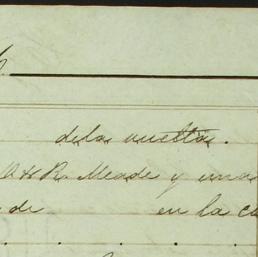 dela vuelta.
R. Meade y una
de en la ca